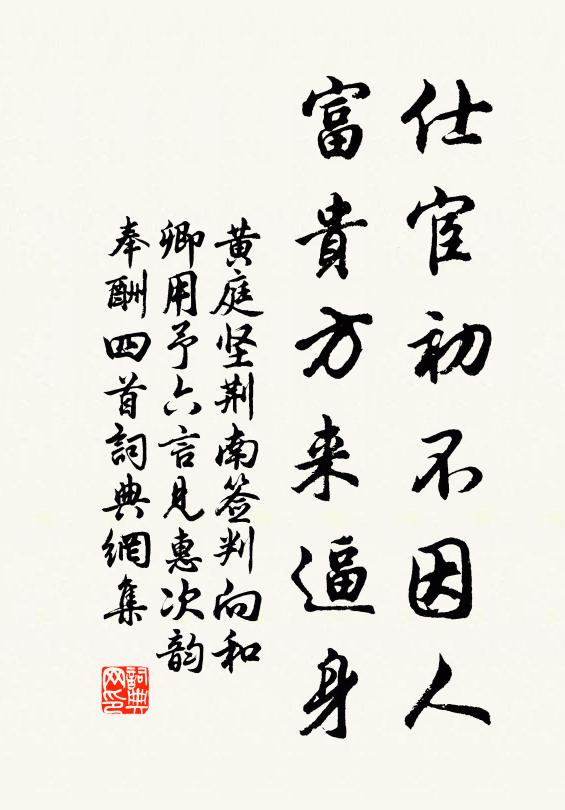 仕宦初不因人
富貴方来逼身
黄庭坚荆南签判向和
卿用予六言見惠次韵
奉酬四首詞典網集
詞典网印